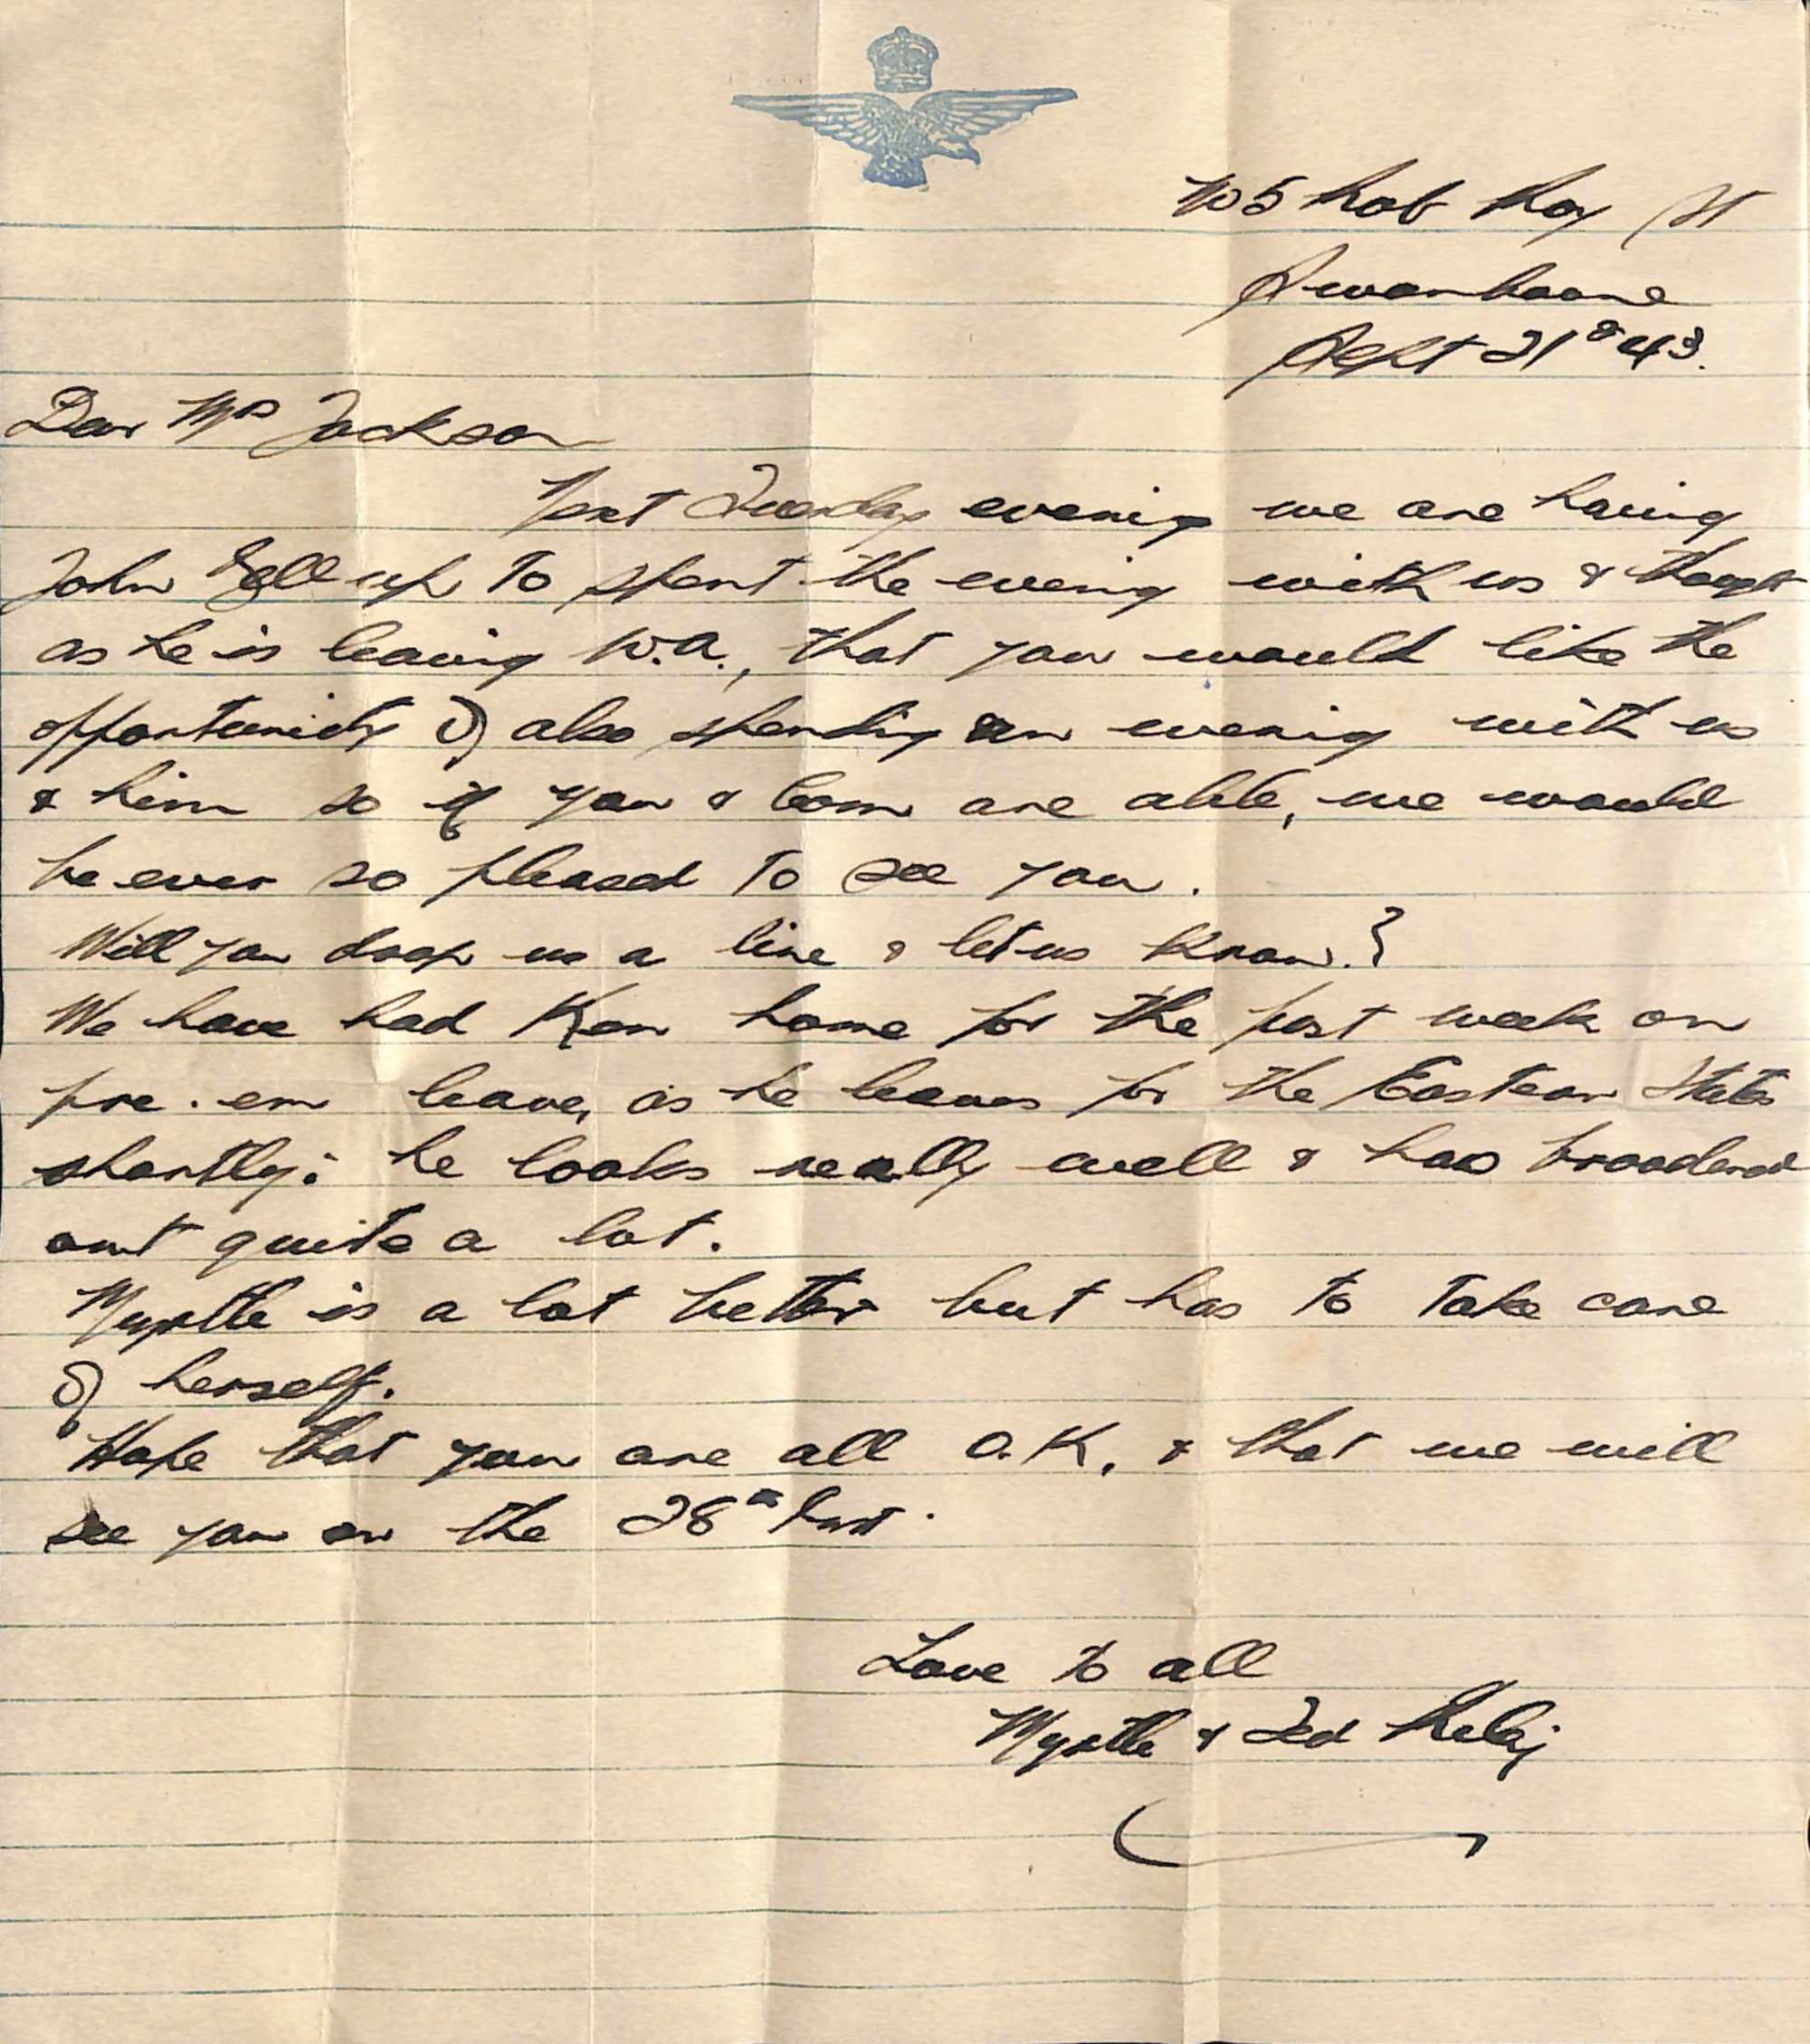 105 Rob Roy St
Swanbourne
Sept 21st 43.
Dear Mrs Jackson
Next Tuesday evening we are having
John up to spent the evening with us & thought
as he is leaving W.A., that you would like the
opportunity of also spending an evening with us
& him so if you & are able, we would
be ever so pleased to see you.
Will you drop us a line & let us know.?
We have had Ken home for the past week on
pre. em leave, as he leaves for the Eastern States
shortly: he looks really well & has broadened
out quite a lot.
Myrtle is a lot better but has to take care
of herself.
Hope that you are all O.K. & that we will
see you on the 28th inst.
Love to all
Myrtle & Ted